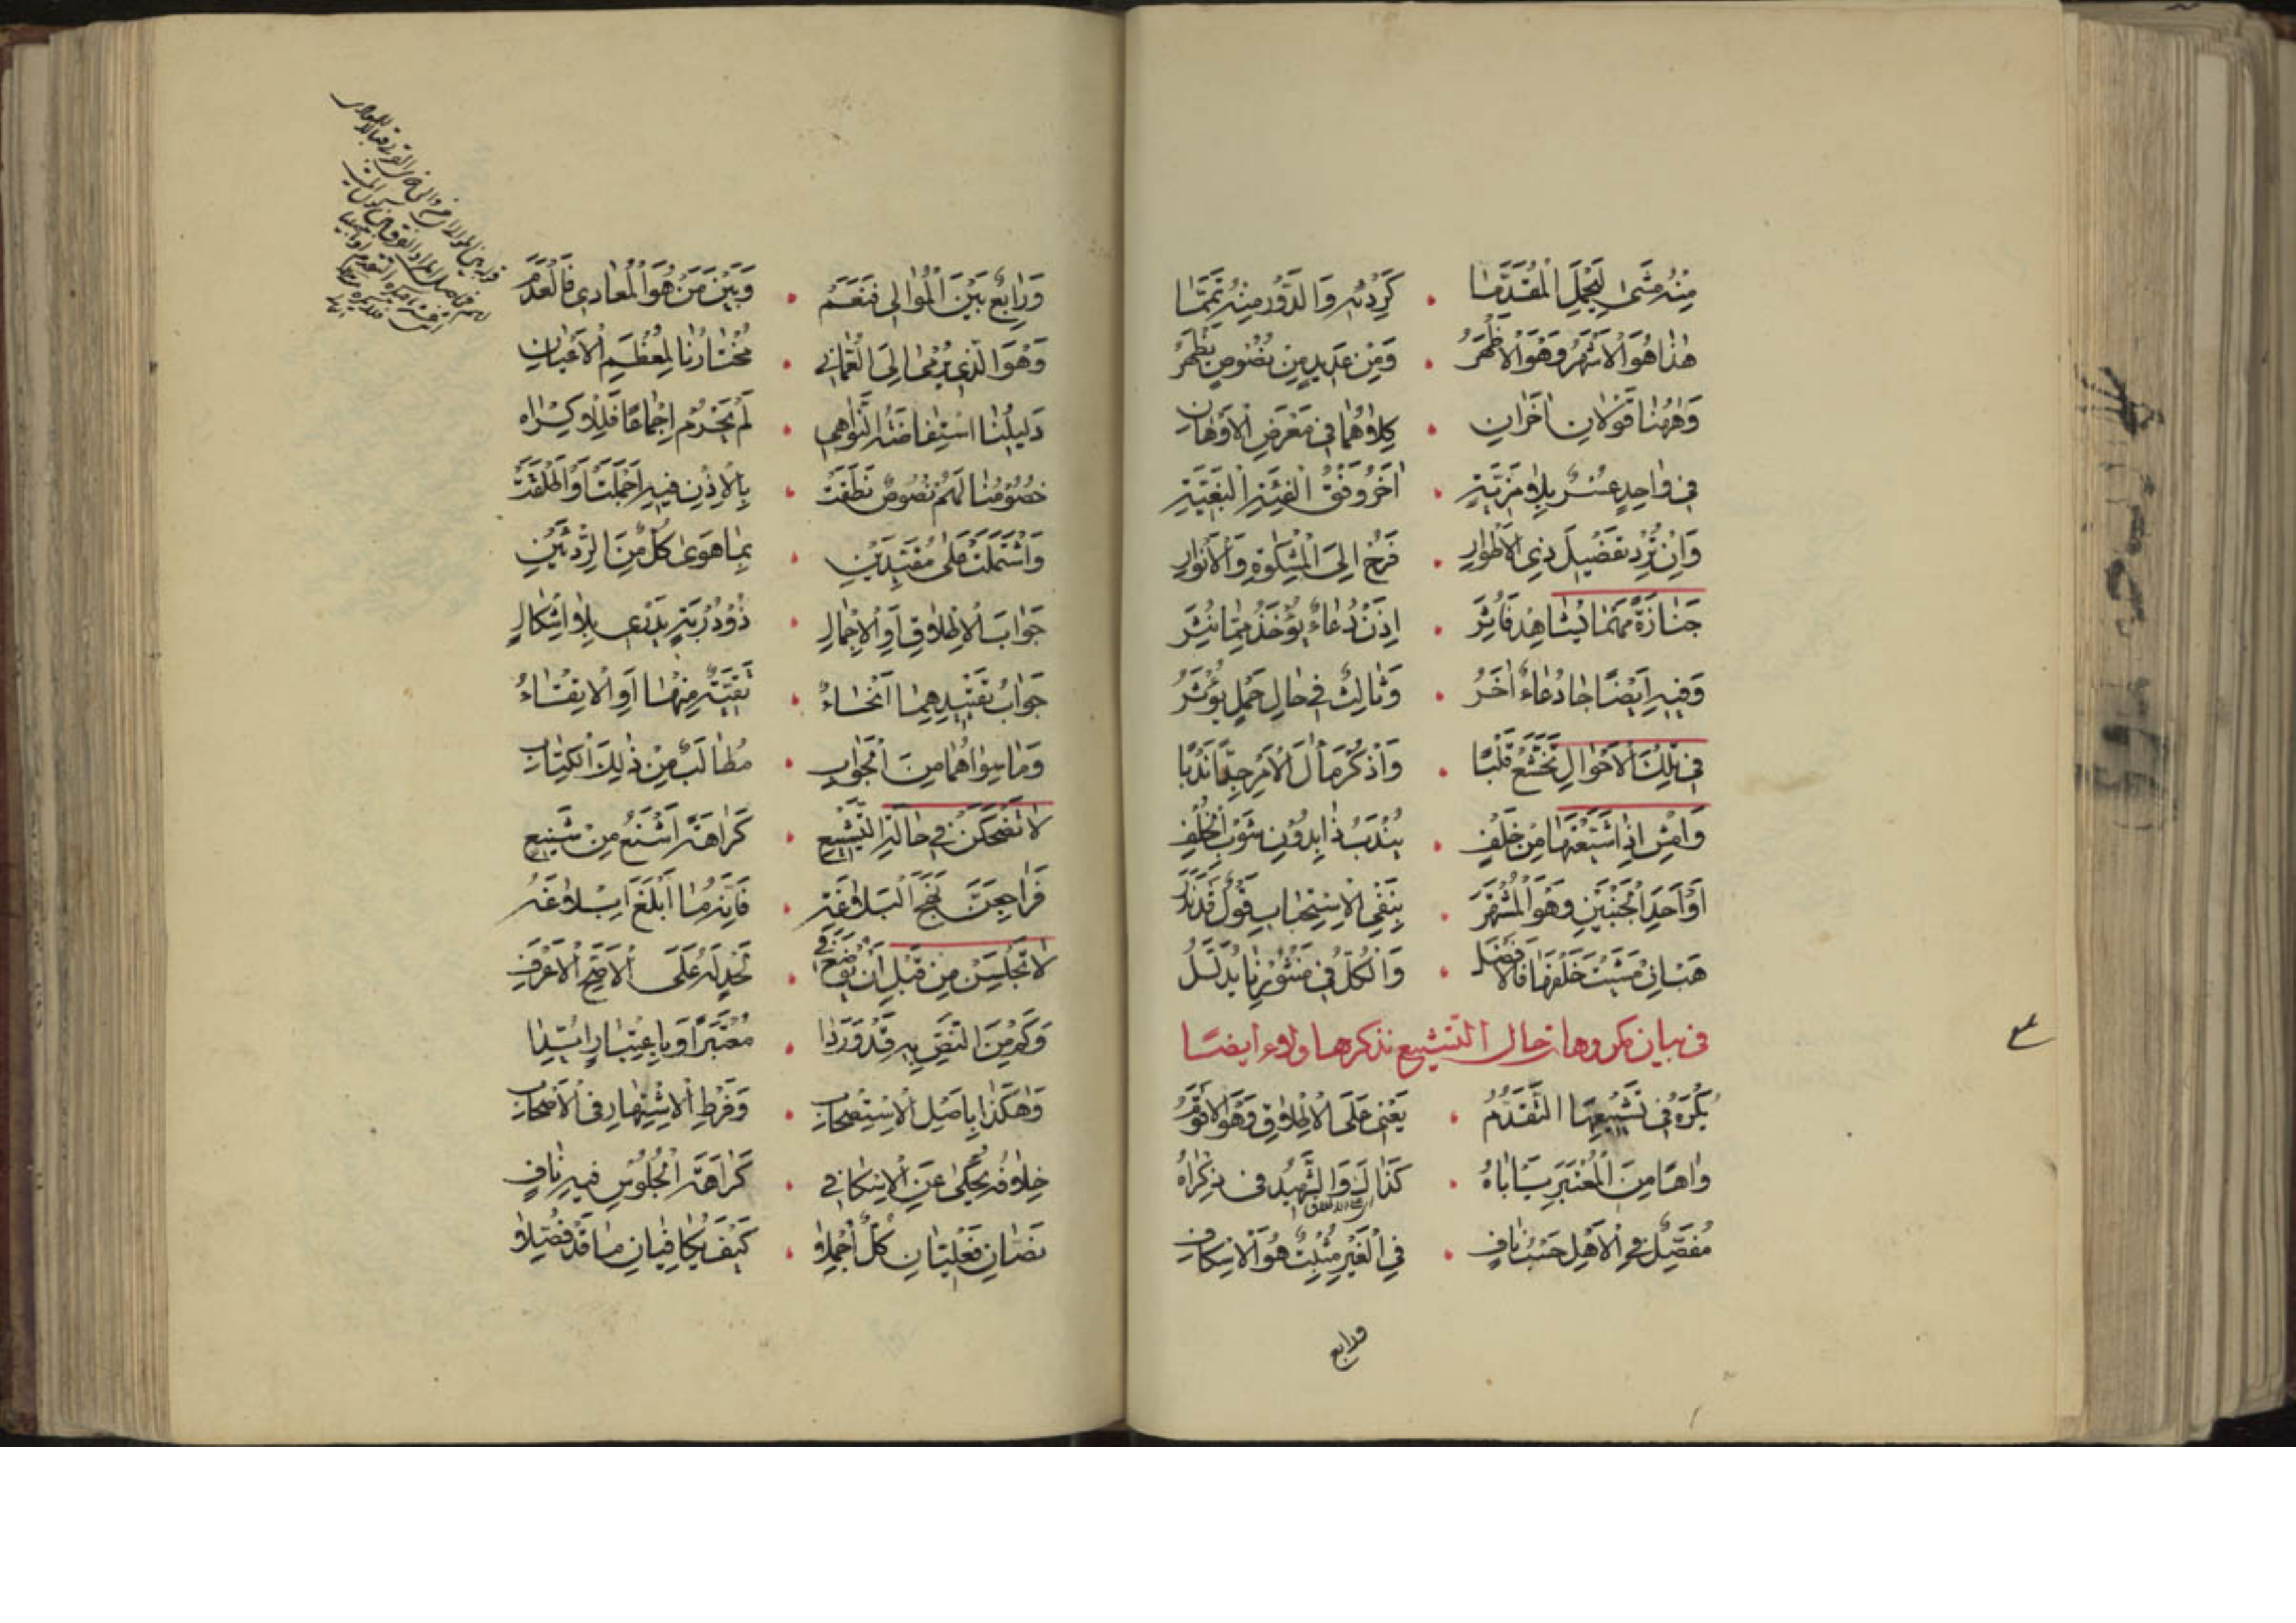 مِنْهُ مَشَى لِيَحْمِلَ الْمُقَدَّمَا • كَرِدْئِهِ وَالدَّوْرُ مِنْهُ تَمَّمَا
هٰذَا هُوَ الْأَشْهَرُ وَهْوَ الْأَظْهَرُ • وَمِنْ عَدِيدٍ مِنْ نُصُوصٍ يَظْهَرُ
وَهٰهُنَا قَوْلَانِ آخَرَانِ • كِلَاهُمَا فِي مَعْرَضِ الْأَوْهَانِ
فِي وَاحِدٍ عُسْرٌ بِلَا مَزِيَّةٍ • آخَرُ وَفْقَ الْفِئَةِ الْبَغِيَّةِ
وَإِنْ تُرِدْ تَفْضِيلَ ذِي الْأَطْوَارِ • فَرُحْ إِلَى الْمِشْكٰوةِ وَالْأَنْوَارِ
جَنَازَةً مَهْمَا تُشَاهِدْ فَأْثُرْ • إِذَنْ دُعَاءً يُؤْخَذُ مِمَّا نُثِرَ
وَفِيهِ أَيْضًا جَا دُعَاءٌ آخَرُ • وَثَالِثٌ فِي حَالِ حَمْلٍ يُؤْثَرُ
فِي تِلْكَ الْأَحْوَالِ تَخَشَّعْ قَلْبًا • وَاذْكُرْ مَآلَ الْأَمْرِ جِدًّا نَدْبًا
وَامْشِ إِذَا شَيَّعْتَهَا مِنْ خَلْفِ • يُنْدَبُ ذَا بِدُونِ شَوْبِ الْخُلْفِ
أَوْ أَحَدِ الْجَنْبَيْنِ وَهْوَ الْمُشْتَهَرُ • بِنَفْيِ الْاِسْتِحْبَابِ قَوْلٌ قَدْ نَدَرَ
هَبْ إِنْ مَشَيْتَ خَلْفَهَا فَالْأَفْضَلُ • وَالْكُلُّ فِي مَنْثُورِنَا يُدَلَّلُ
في بيان مكروهات حال التشييع نذكرها ولاء ايضًا
يُكْرَهُ فِي تَشْيِيعِهَا التَّقَدُّمُ • يَعْنِي عَلَى الْإِطْلَاقِ وَهْوَ الْأَقْوَمُ
وَاهًا مِنَ الْمُعْتَبَرِ يَأْبَاهُ • كَذَاكَ وَالشَّهِيدُ فِي ذِكْرَاهُ
مُفَصِّلٌ فِي الْأَهْلِ حَسْبُ نَافٍ • فِي الْغَيْرِ مُثْبِتٌ هُوَ الْإِسْكَافِ
ورابع
وَرَابِعٌ بَيْنَ الْمُوَالِي فَنَعَمْ • وَبَيْنَ مَنْ هُوَ الْمُعَادِي فَالْعَدَمْ
وَهْوَ الَّذِي يُرْمَى إِلَى الْعُمَانِي • مُخْتَارُنَا لِمُعْظَمِ الْأَعْيَانِ
دَلِيلُنَا اسْتِفَاضَةُ النَّوَاهِي • لَمْ يَحْرُمْ إِجْمَاعًا فَلِلْإِكْرَاهِ
خُصُومُنَا لَهُمْ نُصُوصٌ نَطَقَتْ • بِالْإِذْنِ فِيهِ أَجْمَلَتْ وَأَطْلَقَتْ
وَاشْتَمَلَتْ عَلَى مُقَيِّدَيْنِ • بِمَا هَوَى كُلٌّ مِنَ الرِّدْئَيْنِ
جَوَابَ الْإِطْلَاقِ أَوِ الْإِجْمَالِ • ذُو دُرْبَةٍ يَدْرِي بِلَا إِشْكَالِ
جَوَابُ تَقْيِيدِهِمَا أَنْحَاءُ • تَقِيَّةٌ مِنْهَا أَوِ الْاِتِّقَاءُ
وَمَا سِوَاهُمَا مِنَ الْجَوَابِ • مُطَالَبٌ مِنْ ذٰلِكَ الْكِتَابِ
لَا تَضْحَكَنْ فِي حَالَةِ التَّشْيِيعِ • كَرَاهَةً أَشْنَعُ مِنْ شَنِيعِ
فَرَاجِعَنَّ نَهْجَ الْبَلَاغَةِ • فَإِنَّهُ مَا أَبْلَغَ إِبْلَاغَهُ
لَا تَجْلِسَنْ مِنْ قَبْلِ أَنْ تُوضَعَ فِي • لَحْدٍ لَهُ عَلَى الْأَصَحِّ الْأَعْرَفِ
وَكَمْ مِنَ النَّصِّ بِهِ قَدْ وَرَدَا • مُعْتَبَرًا وَبِاعْتِبَارٍ أُيِّدَا
وَهٰكَذَا بِأَصْلِ الْاِسْتِصْحَابِ • وَفَرْطِ الْاِشْتِهَارِ فِي الْأَصْحَابِ
خِلَافُهُ يُحْكَى عَنِ الْإِسْكَافِي • كَرَاهَةَ الْجُلُوسِ فِيهِ نَافٍ
نَصَّانِ فَعْلِيَّانِ كُلٌّ أُجْمِلَا • كَيْفَ يُكَافِيَانِ مَا قَدْ فُصِّلَا